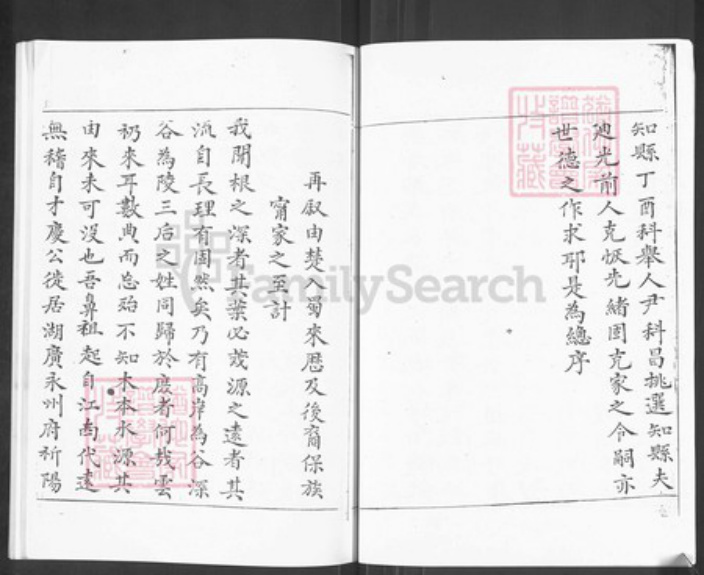 知縣丁酉科舉人尹科昌挑選知縣夫
廸光前人克恢先緒固克家之令嗣亦
世德之作求耶是為總序
再叙由楚入蜀來歷及後裔保族
甯家之至計
我聞根之深者其葉必茂源之遠者其
流自長理有固然矣乃有高岸為谷深
谷為陵三后之姓同歸於庶者何哉雲
礽來耳數典而忘殆不知木本水源其
由來未可沒也吾鼻祖起自江南代遠
無稽自才慶公徙居湖廣永州府祈陽
FamilySearch